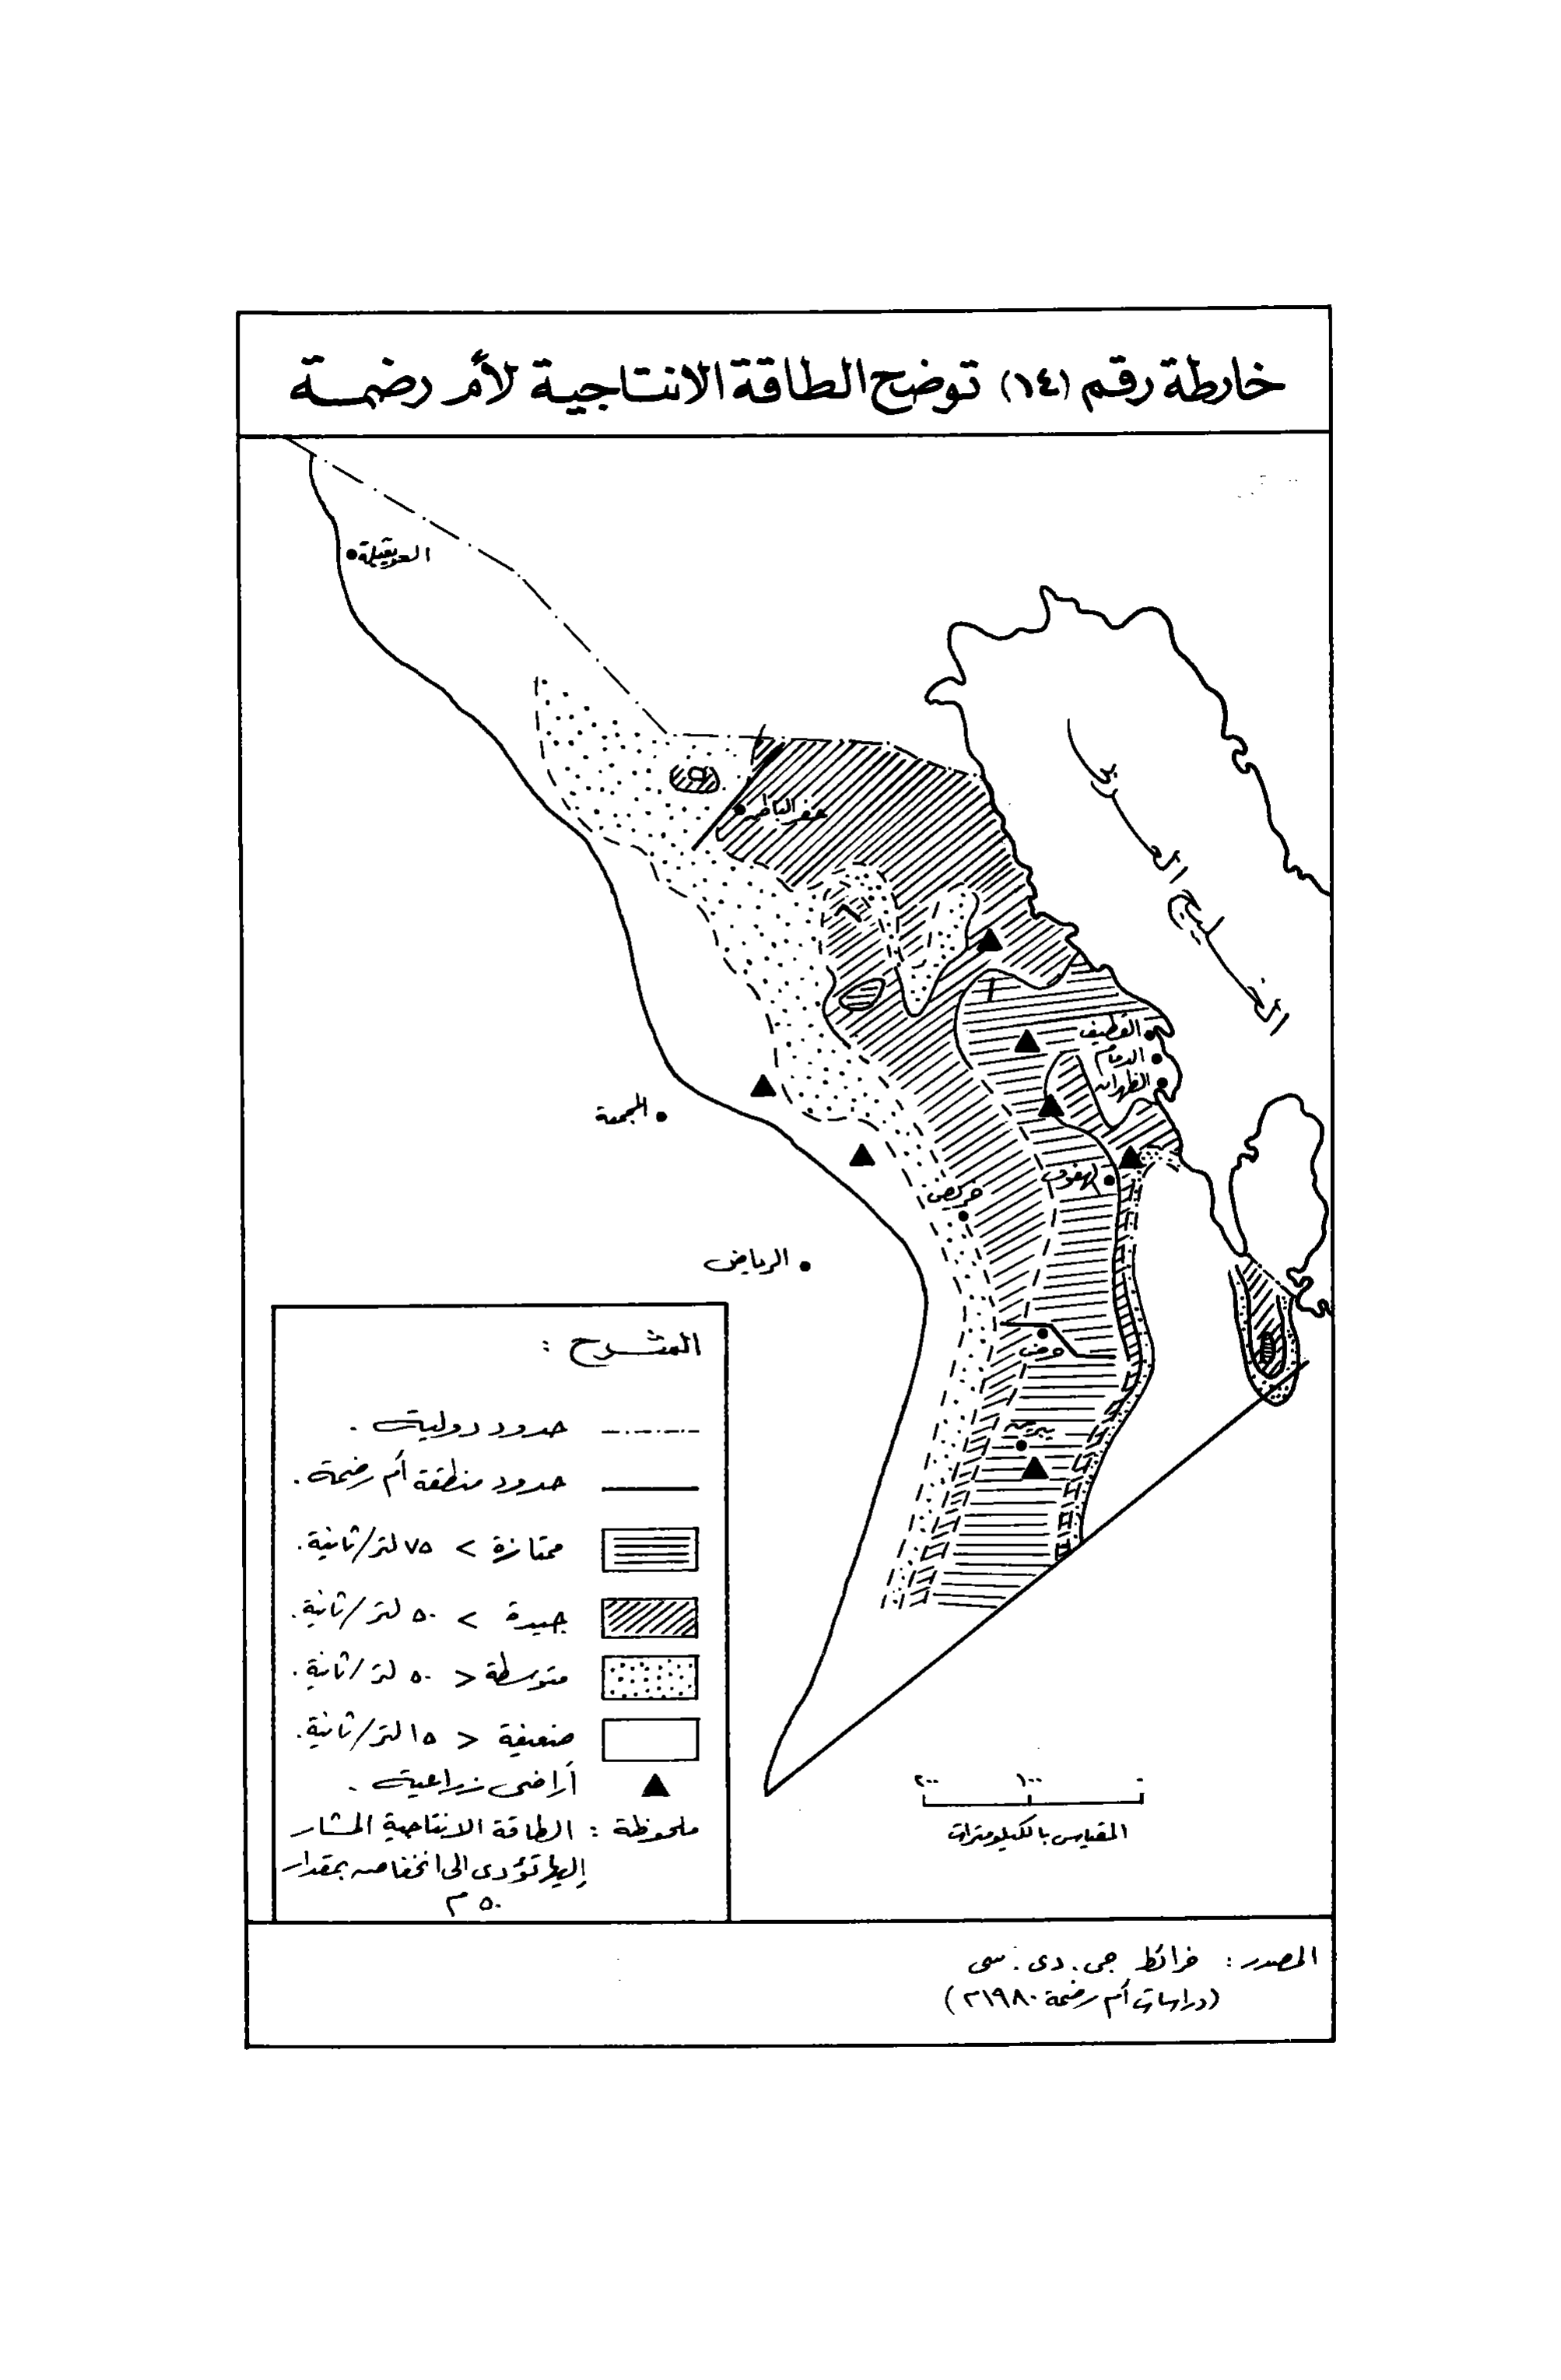 خارطة رقم (١٤) توضح الطاقة الانتاجية لأم رضمة
العويقيلة
حفر الباطن
الخليج العربي
القطيف
الدمام
الظهران
المجمعة
الهفوف
خريص
الرياض
حرض
يبرين
الشرح :
حدود دولية .
حدود منطقة أم رضمة .
ممتازة > ٧٥ لتر/ثانية .
جيدة > ٥٠ لتر/ثانية .
متوسطة < ٥٠ لتر/ثانية .
ضعيفة < ١٥ لتر/ثانية .
أراضى زراعية .
ملحوظة : الطاقة الانتاجية المشار
إليها تؤدى الى انخفاض بمقدار
٥٠ م
٢٠٠ ١٠٠ ٠
المقياس بالكيلومترات
المصدر : خرائط جى . دى . سى
(دراسات أم رضمة ١٩٨٠م)